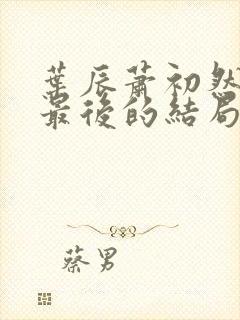 葉辰蕭初然
最後的結局
蔡男